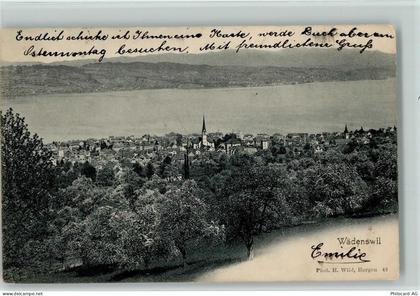 Endlich schicke ich Ihnen eine Karte, werde Duch aber am
Ostermontag besuchen. Mit freundlichen Gruß
Wädenswil
Emilie
Phot. H. Wild, Horgen
picclickimg.com